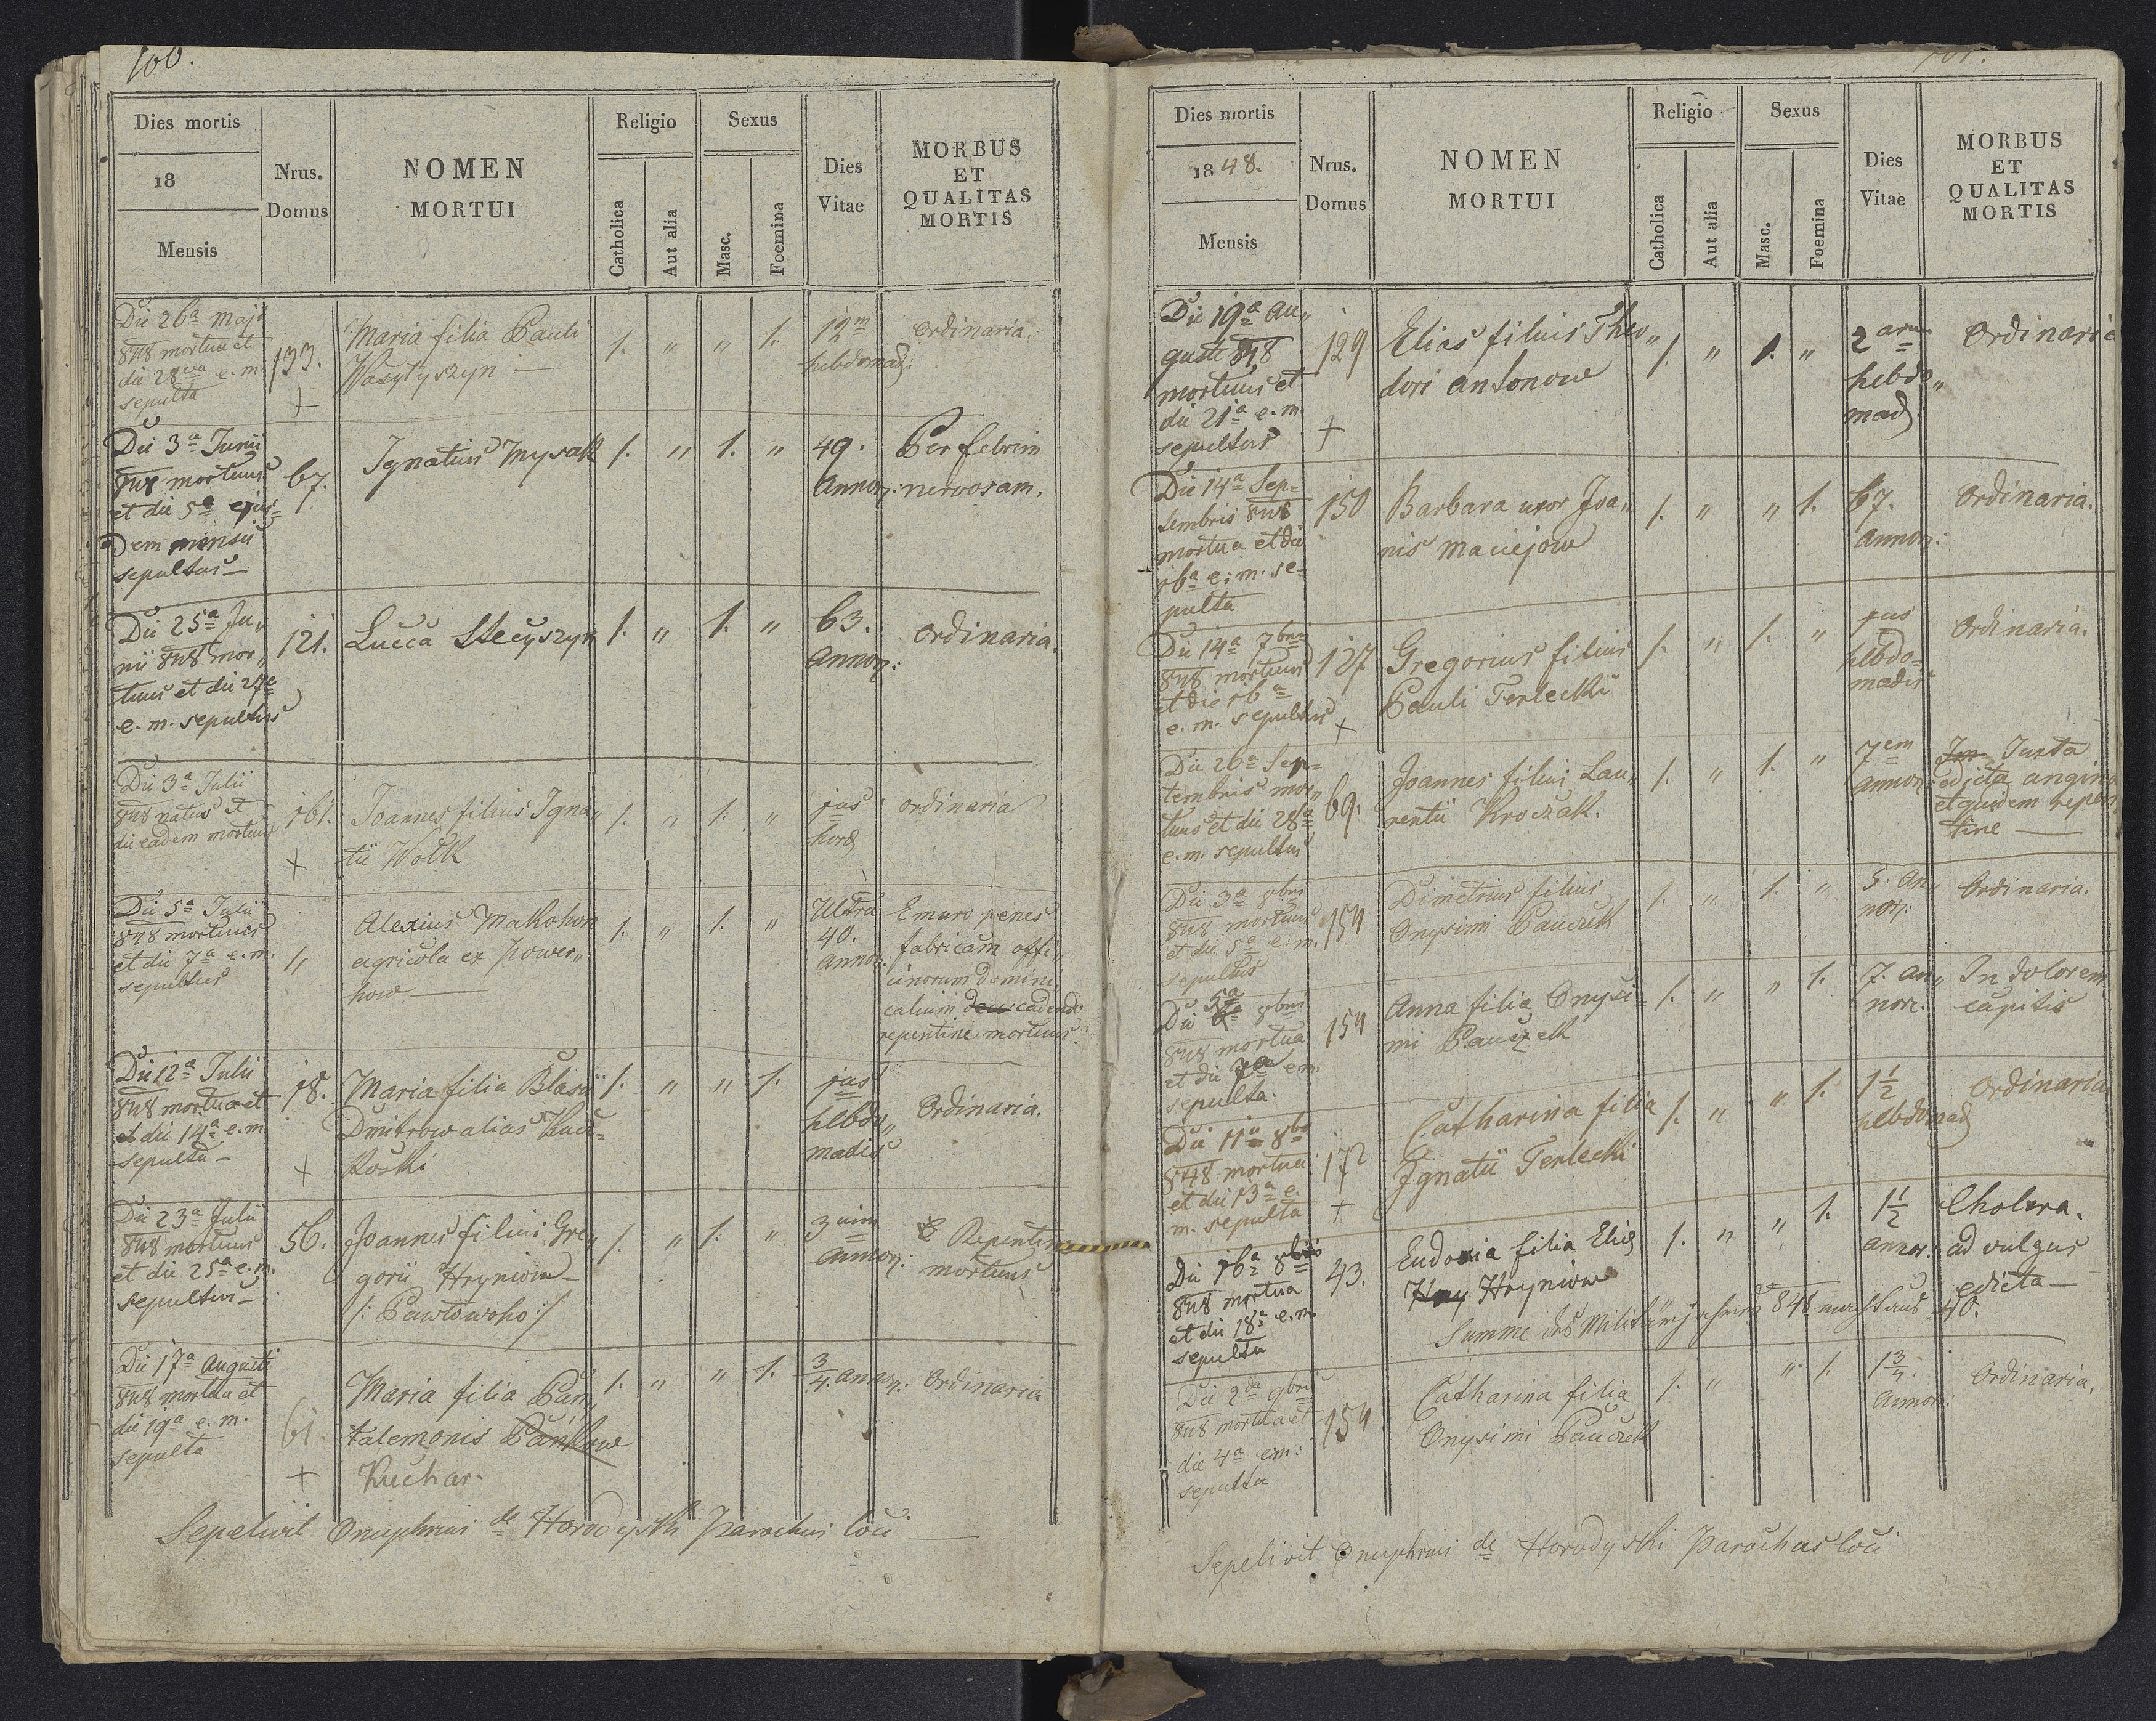 100.
Dies mortis
18
Mensis
Nrus.
Domus
NOMEN
MORTUI
Religio
Catholica
Aut alia
Sexus
Masc.
Foemina
Dies
Vitae
MORBUS
ET
QUALITAS
MORTIS
Die 26a Maji
848 mortua et
die 28va e.m
sepulta
133.
+
Maria filia Pauli
Wasylyszyn —
1. " " 1.
12m
hebdomad.
Ordinaria.
Die 3a Junii
848 mortuus
et die 5a ejus=
dem mensis
sepultus —
67.
Ignatius Mysak
1. " 1. "
49.
Annor:
Per febrim
nervosam.
Die 25a Ju„
nii 848 mor„
tuus et die 27a
e. m. sepultus
121.
Lucca Stecyszyn
1. " 1. "
63.
Annor:
Ordinaria.
Die 3a Julii
848 natus et
die eadem mortuus
161.
+
Joannes filius Igna„
tii Wolk
1. " 1. "
jus
hora
ordinaria
Die 5a Julii
848 mortuus
et die 7a e.m.
sepultus
"
Alexius Makohon
agricola ex Power„
how —
1. " 1. "
Ultra
40.
Annor:
E muro penes
fabricam offi„
cinorum domini
calium deu cadendo
repentine mortuus.
Die 12a Julii
848 mortua et
et die 14a e.m
sepulta —
18.
+
Maria filia Blasii
Dmitrow alias Kucz=
koski
1. " " 1.
jus
hebdo„
madis
Ordinaria.
Die 23a Julii
848 mortuus
et die 25a e.m.
sepultus —
56.
Joannes filius Gre„
gorii Hryniow —
/: Pawlowoho :/
1. " 1. "
3um
Annor:
Repentine
mortuus
Die 17a Augusti
848 mortua et
die 19a e. m.
sepulta
61.
+
Maria filia Pan„
talemonis Pankow
Kuchar.
1. " " 1.
3/4 annor:
Ordinaria
Sepelivit Onuphrius de Horodyski Parochus loci —
101.
Dies mortis
1848.
Mensis
Nrus.
Domus
NOMEN
MORTUI
Religio
Catholica
Aut alia
Sexus
Masc.
Foemina
Dies
Vitae
MORBUS
ET
QUALITAS
MORTIS
Die 19a Au„
gusti 848
mortuus et
die 21a e.m.
sepultus
129
+
Elias filius Theo„
dori Antonow
1. " 1. "
2arum
hebdo„
mad:
Ordinaria
Die 14a Sep=
tembris 848
mortua et die
16a e: m. se=
pulta
150
Barbara uxor Joa„
nis Maciejow
1. " " 1.
67.
Annor:
Ordinaria.
Die 14a 7bris
848 mortuus
et die 16a
e. m. sepultus
127
+
Gregorius filius
Pauli Terlecki
1. " 1. "
jus
hebdo=
madis
Ordinaria.
Die 26a Sep=
tembris mor„
tuus et die 28a
e.m. sepultus
69.
Joannes filius Lau„
rentii Kroczak.
1. " 1. "
7em
annor:
Juxta
edicta angina
et quidem repen„
tine —
Die 3a 8bris
848 mortuus
et die 5a e:m.
sepultus
154
Dimetrius filius
Onysimi Pauczek
1. " 1. "
5. An„
nor:
Ordinaria.
Die 5a 8bris
848 mortua
et die 7a em.
sepulta.
154
Anna filia Onysi=
mi Pauczek
1. " " 1.
7. An„
nor:
In dolorem
capitis
Die 11a 8bris
848 mortua
et die 13a e.
m. sepulta
172
+
Catharina filia
Ignatii Terlecki
1. " " 1.
1 1/2
hebdomad
Ordinaria
Die 16a 8bris
848 mortua
et die 18a e.m.
sepulta
43.
Eudoxia filia Eliæ
Hry Hryniow
1. " " 1.
1 1/2
annor:
Cholera.
ad vulgus
edicta —
Summe des Militärjahres 848 40.
Die 2da 9bris
848 mortua et
die 4a em:
sepulta
154
Catharina filia
Onysimi Pauczek
1. " " 1.
1 3/4.
Annor:
Ordinaria.
Sepelivit Onuphrius de Horodyski Parochus loci